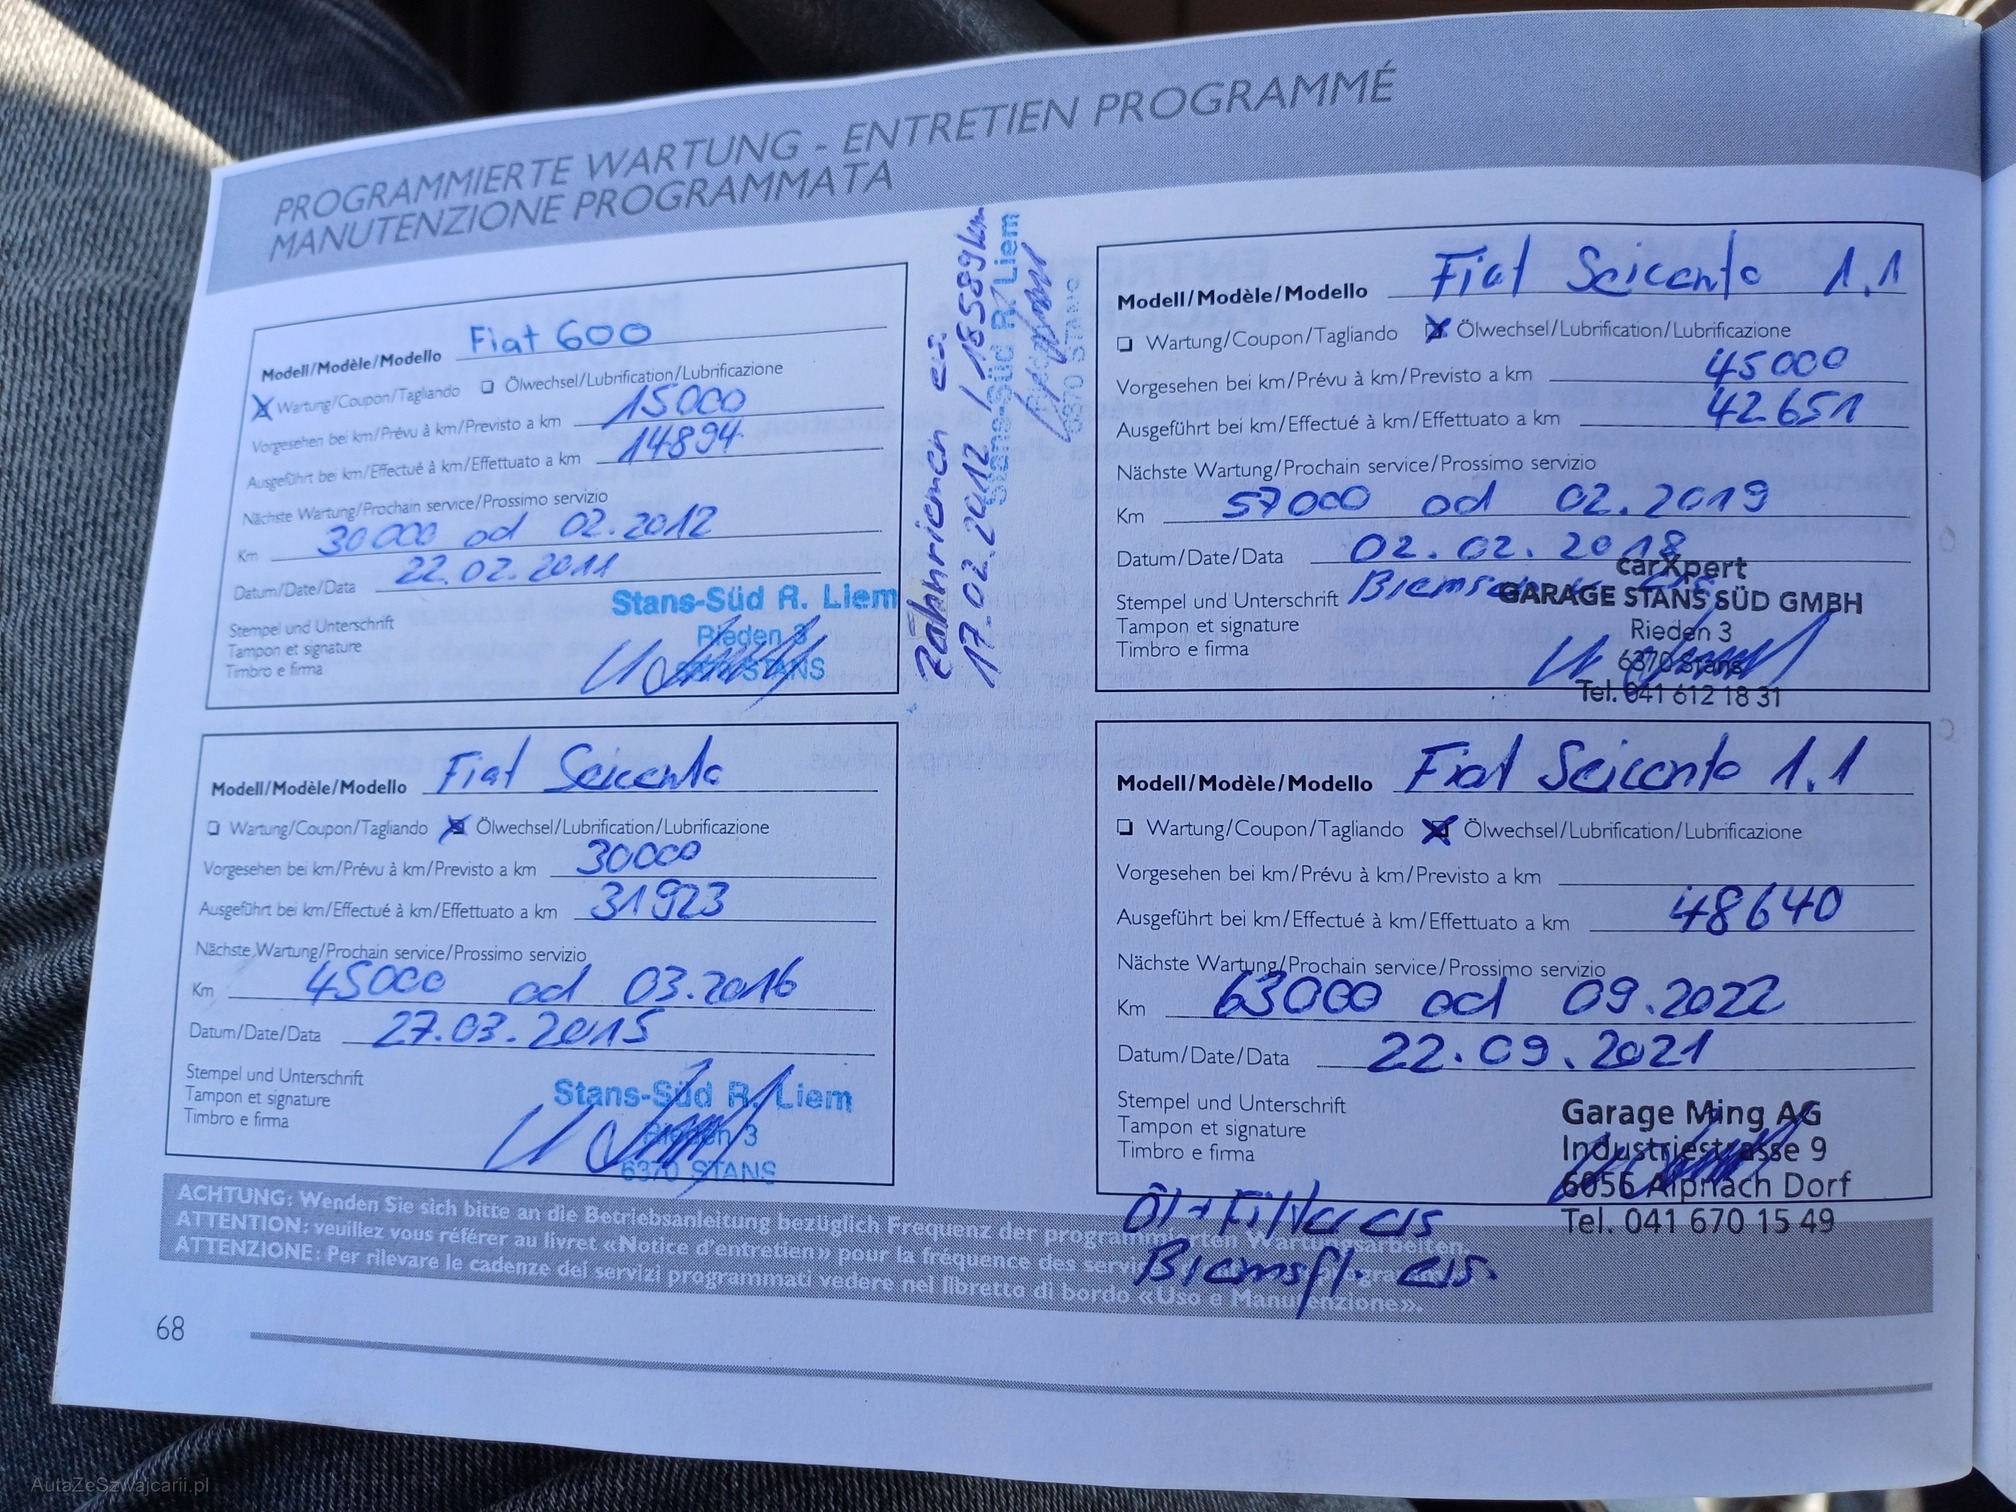 PROGRAMMIERTE WARTUNG - ENTRETIEN PROGRAMMÉ
MANUTENZIONE PROGRAMMATA
Modell/Modèle/Modello Fiat 600
Wartung/Coupon/Tagliando Ölwechsel/Lubrification/Lubrificazione
Vorgesehen bei km/Prévu à km/Previsto a km 15000
Ausgeführt bei km/Effectué à km/Effettuato a km 14894
Nächste Wartung/Prochain service/Prossimo servizio
Km 30000 od 02.2012
Datum/Date/Data 22.02.2011
Stempel und Unterschrift
Tampon et signature
Timbro e firma
Stans-Süd R. Liem
Rieden 3
6370 STANS
Zahnriemen ers.
17.02.2012 / 18589km
Stans-Süd R. Liem
6370 STANS
Modell/Modèle/Modello Fiat Seicento
Wartung/Coupon/Tagliando Ölwechsel/Lubrification/Lubrificazione
Vorgesehen bei km/Prévu à km/Previsto a km 30000
Ausgeführt bei km/Effectué à km/Effettuato a km 31923
Nächste Wartung/Prochain service/Prossimo servizio
Km 45000 od 03.2016
Datum/Date/Data 27.03.2015
Stempel und Unterschrift
Tampon et signature
Timbro e firma
Stans-Süd R. Liem
Rieden 3
6370 STANS
Modell/Modèle/Modello Fiat Seicento 1.1
Wartung/Coupon/Tagliando Ölwechsel/Lubrification/Lubrificazione
Vorgesehen bei km/Prévu à km/Previsto a km 45000
Ausgeführt bei km/Effectué à km/Effettuato a km 42651
Nächste Wartung/Prochain service/Prossimo servizio
Km 57000 od 02.2019
Datum/Date/Data 02.02.2018
Stempel und Unterschrift
Tampon et signature
Timbro e firma
carXpert
GARAGE STANS SÜD GMBH
Rieden 3
6370 Stans
Tel. 041 612 18 31
Modell/Modèle/Modello Fiat Seicento 1.1
Wartung/Coupon/Tagliando Ölwechsel/Lubrification/Lubrificazione
Vorgesehen bei km/Prévu à km/Previsto a km
Ausgeführt bei km/Effectué à km/Effettuato a km 48640
Nächste Wartung/Prochain service/Prossimo servizio
Km 63000 od 09.2022
Datum/Date/Data 22.09.2021
Stempel und Unterschrift
Tampon et signature
Timbro e firma
Garage Ming AG
Industriestrasse 9
6055 Alpnach Dorf
Tel. 041 670 15 49
Öl + Filter ers
Bremsfl. ers.
ACHTUNG: Wenden Sie sich bitte an die Betriebsanleitung bezüglich Frequenz der programmierten Wartungsarbeiten.
ATTENTION: veuillez vous référer au livret «Notice d'entretien» pour la fréquence des services
ATTENZIONE: Per rilevare le cadenze dei servizi programmati vedere nel libretto di bordo «Uso e Manutenzione».
68
AutaZeSzwajcarii.pl